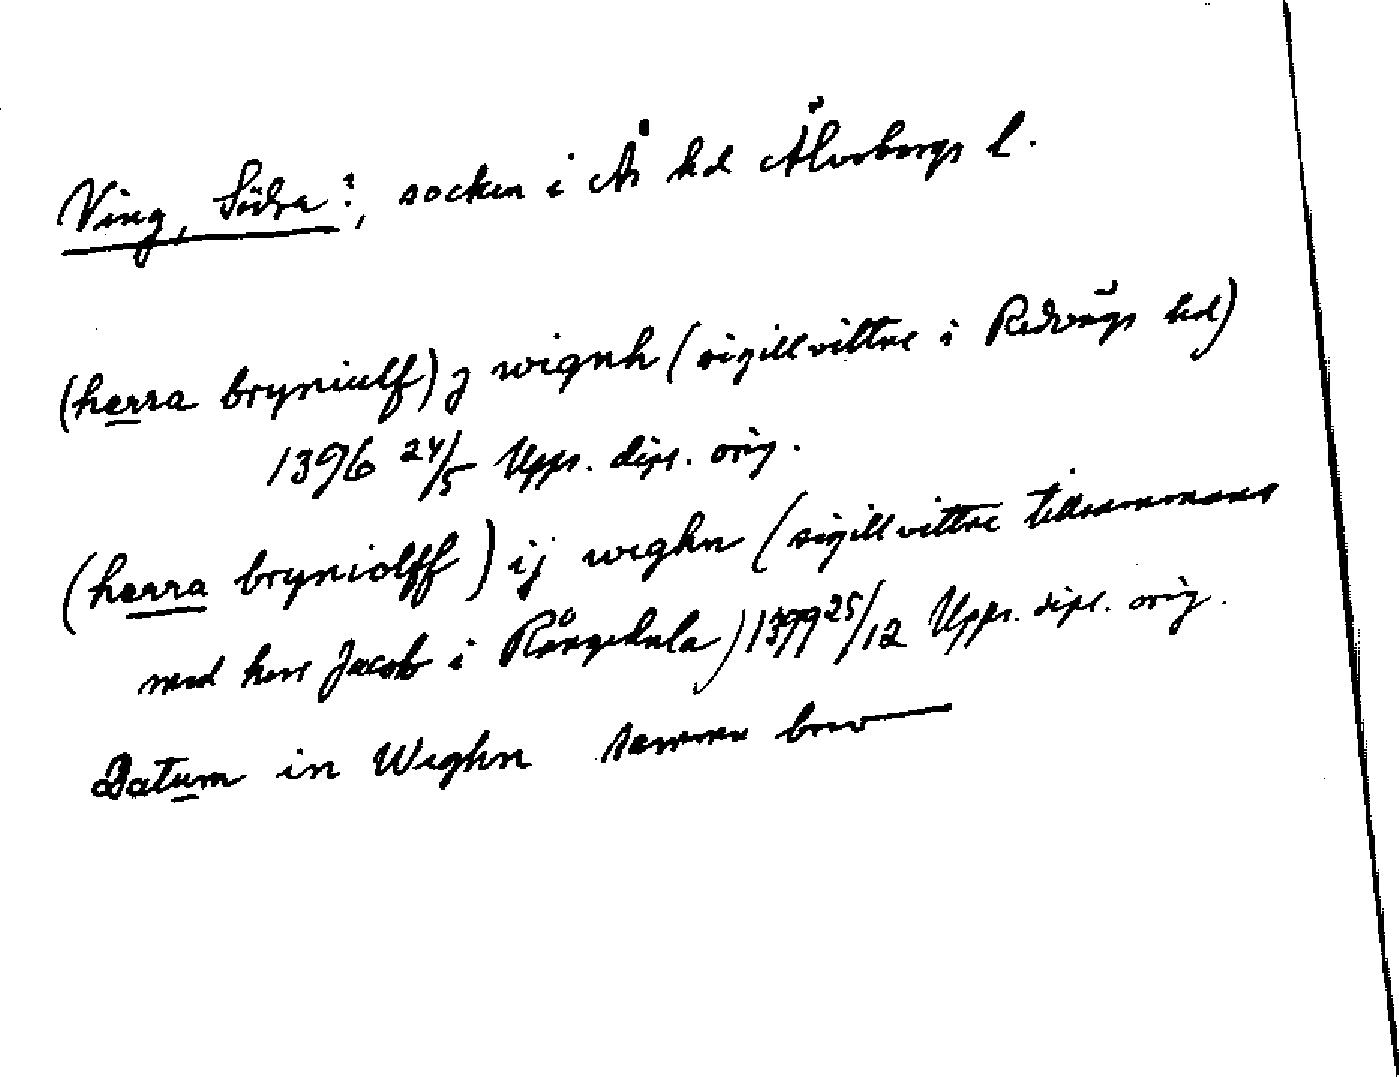 Ving, Södra?, socken i Ås hd Älvsborgs l.
(herra bryniulf) j wignh (sigillvittne i Redvägs hd)
1396 24/5 Upps. dipl. orig.
(herra bryniolff) ij weghn (sigillvittne tillsammans
med herr Jacob i Rångedala) 1399 25/12 Upps. dipl. orig.
Datum in Weghn samma brev